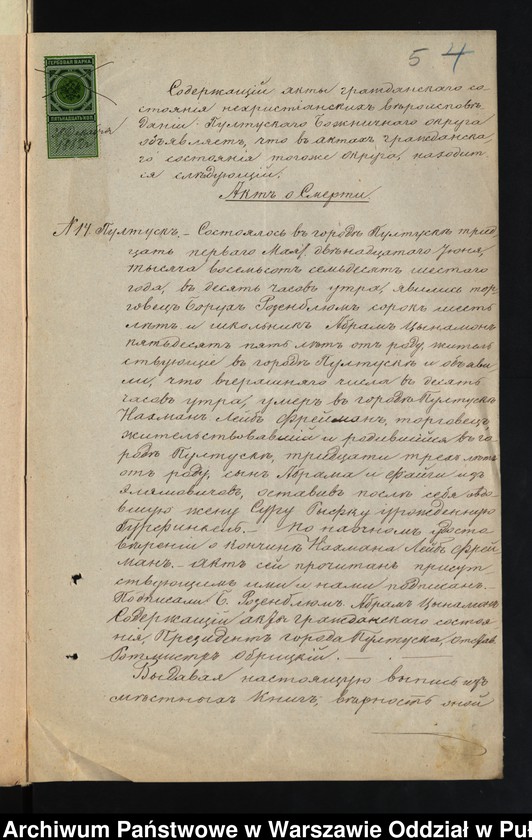 5 4
ГЕРБОВАЯ МАРКА
ПЯТНАДЦАТЬ КОП.
Содержащій акты гражданскаго со-
стоянія нехристіанскихъ вѣроисповѣ-
даній Пултускаго Божничнаго округа
объявляетъ, что въ актахъ гражданска-
го состоянія тогоже округа, находит-
ся слѣдующій.
Актъ о Смерти.
№ 17 Пултускъ. – Состоялось въ городѣ Пултускѣ трид-
цать перваго Мая/ двѣнадцатаго Іюня,
тысяча восемьсотъ семьдесятъ шестаго
года, въ десять часовъ утра, явились тор-
говецъ Борухъ Розенблюмъ сорокъ шесть
лѣтъ и школьникъ Абрамъ Цынамонъ
пятьдесятъ пять лѣтъ отъ роду, житель-
ствующіе въ городѣ Пултускѣ и объяви-
ли, что вчерашняго числа въ десять
часовъ утра, умеръ въ городѣ Пултускѣ
Нахманъ Лейбъ Фрейманъ, торговецъ
жительствовавшій и родившійся въ го-
родѣ Пултускѣ, тридцати трехъ лѣтъ
отъ роду, сынъ Абрама и Файги изъ
оставивъ послѣ себя овдо-
вшую жену Суру Рыфку урожденную
– По наочномъ удосто-
вѣреніи о кончинѣ Нахмана Лейбъ Фрей-
манъ. – Актъ сей прочитанъ присут-
ствующимъ ими и нами подписанъ. –
Подписали Б. Розенблюмъ. Абрамъ Цынамонъ
Содержащій акты гражданскаго состоя-
нія, Президентъ города Пултуска,
Ротмистръ Обрицкій. —
Выдавая настоящую выпись изъ
мѣстныхъ книгъ, вѣрность оной
Archiwum Państwowe w Warszawie Oddział w Puł